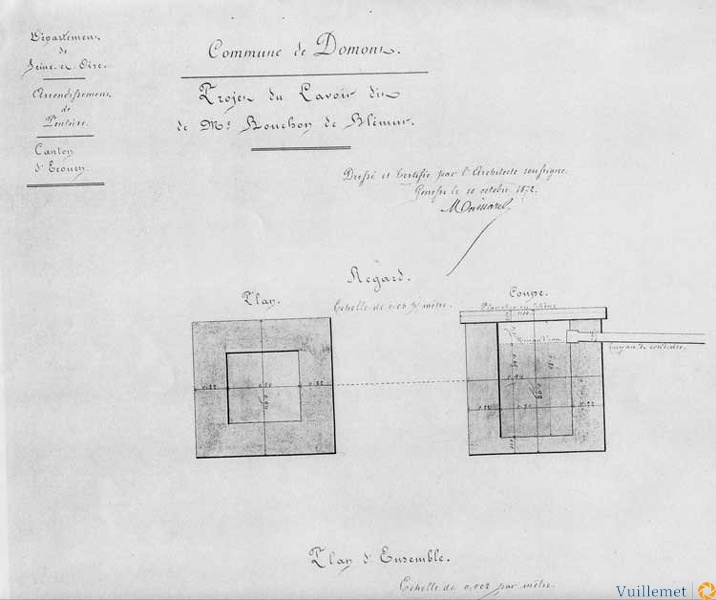 Département
de
Seine-et-Oise.
Arrondissement
de
Pontoise.
Canton
d'Ecouen
Commune de Domont.
Projet du Lavoir dit
de Mr Bouchon de Blémur.
Dressé et Certifié par l'Architecte soussigné
le 10 octobre 1872.
Regard.
Plan.
Echelle de 0.05 p% mètre.
Coupe.
Plancher en chêne
Tuyau de conduite.
0.25
0.50
0.25
0.25
0.50
0.25
Plan d'Ensemble.
Echelle de 0.002 par mètre.
Vuillemet